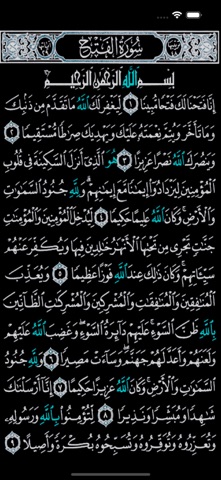 سُورَةُ الفَتْحِ
بِسْمِ اللَّهِ الرَّحْمَٰنِ الرَّحِيمِ
إِنَّا فَتَحْنَا لَكَ فَتْحًا مُّبِينًا ١ لِّيَغْفِرَ لَكَ اللَّهُ مَا تَقَدَّمَ مِن ذَنۢبِكَ
وَمَا تَأَخَّرَ وَيُتِمَّ نِعْمَتَهُۥ عَلَيْكَ وَيَهْدِيَكَ صِرَٰطًا مُّسْتَقِيمًا ٢
وَيَنصُرَكَ اللَّهُ نَصْرًا عَزِيزًا ٣ هُوَ الَّذِىٓ أَنزَلَ السَّكِينَةَ فِى قُلُوبِ
الْمُؤْمِنِينَ لِيَزْدَادُوٓا۟ إِيمَٰنًا مَّعَ إِيمَٰنِهِمْ وَلِلَّهِ جُنُودُ السَّمَٰوَٰتِ
وَالْأَرْضِ وَكَانَ اللَّهُ عَلِيمًا حَكِيمًا ٤ لِّيُدْخِلَ الْمُؤْمِنِينَ وَالْمُؤْمِنَٰتِ
جَنَّٰتٍ تَجْرِى مِن تَحْتِهَا الْأَنْهَٰرُ خَٰلِدِينَ فِيهَا وَيُكَفِّرَ عَنْهُمْ
سَيِّـَٔاتِهِمْ وَكَانَ ذَٰلِكَ عِندَ اللَّهِ فَوْزًا عَظِيمًا ٥ وَيُعَذِّبَ
الْمُنَٰفِقِينَ وَالْمُنَٰفِقَٰتِ وَالْمُشْرِكِينَ وَالْمُشْرِكَٰتِ الظَّآنِّينَ
بِاللَّهِ ظَنَّ السَّوْءِ عَلَيْهِمْ دَآئِرَةُ السَّوْءِ وَغَضِبَ اللَّهُ عَلَيْهِمْ
وَلَعَنَهُمْ وَأَعَدَّ لَهُمْ جَهَنَّمَ وَسَآءَتْ مَصِيرًا ٦ وَلِلَّهِ جُنُودُ
السَّمَٰوَٰتِ وَالْأَرْضِ وَكَانَ اللَّهُ عَزِيزًا حَكِيمًا ٧ إِنَّآ أَرْسَلْنَٰكَ
شَٰهِدًا وَمُبَشِّرًا وَنَذِيرًا ٨ لِّتُؤْمِنُوا۟ بِاللَّهِ وَرَسُولِهِۦ
وَتُعَزِّرُوهُ وَتُوَقِّرُوهُ وَتُسَبِّحُوهُ بُكْرَةً وَأَصِيلًا ٩